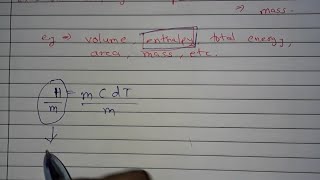 ⇒ mass.
eg ⇒ volume, enthalpy, total energy,
area, mass, etc.
H/m = m C dT/m
↓